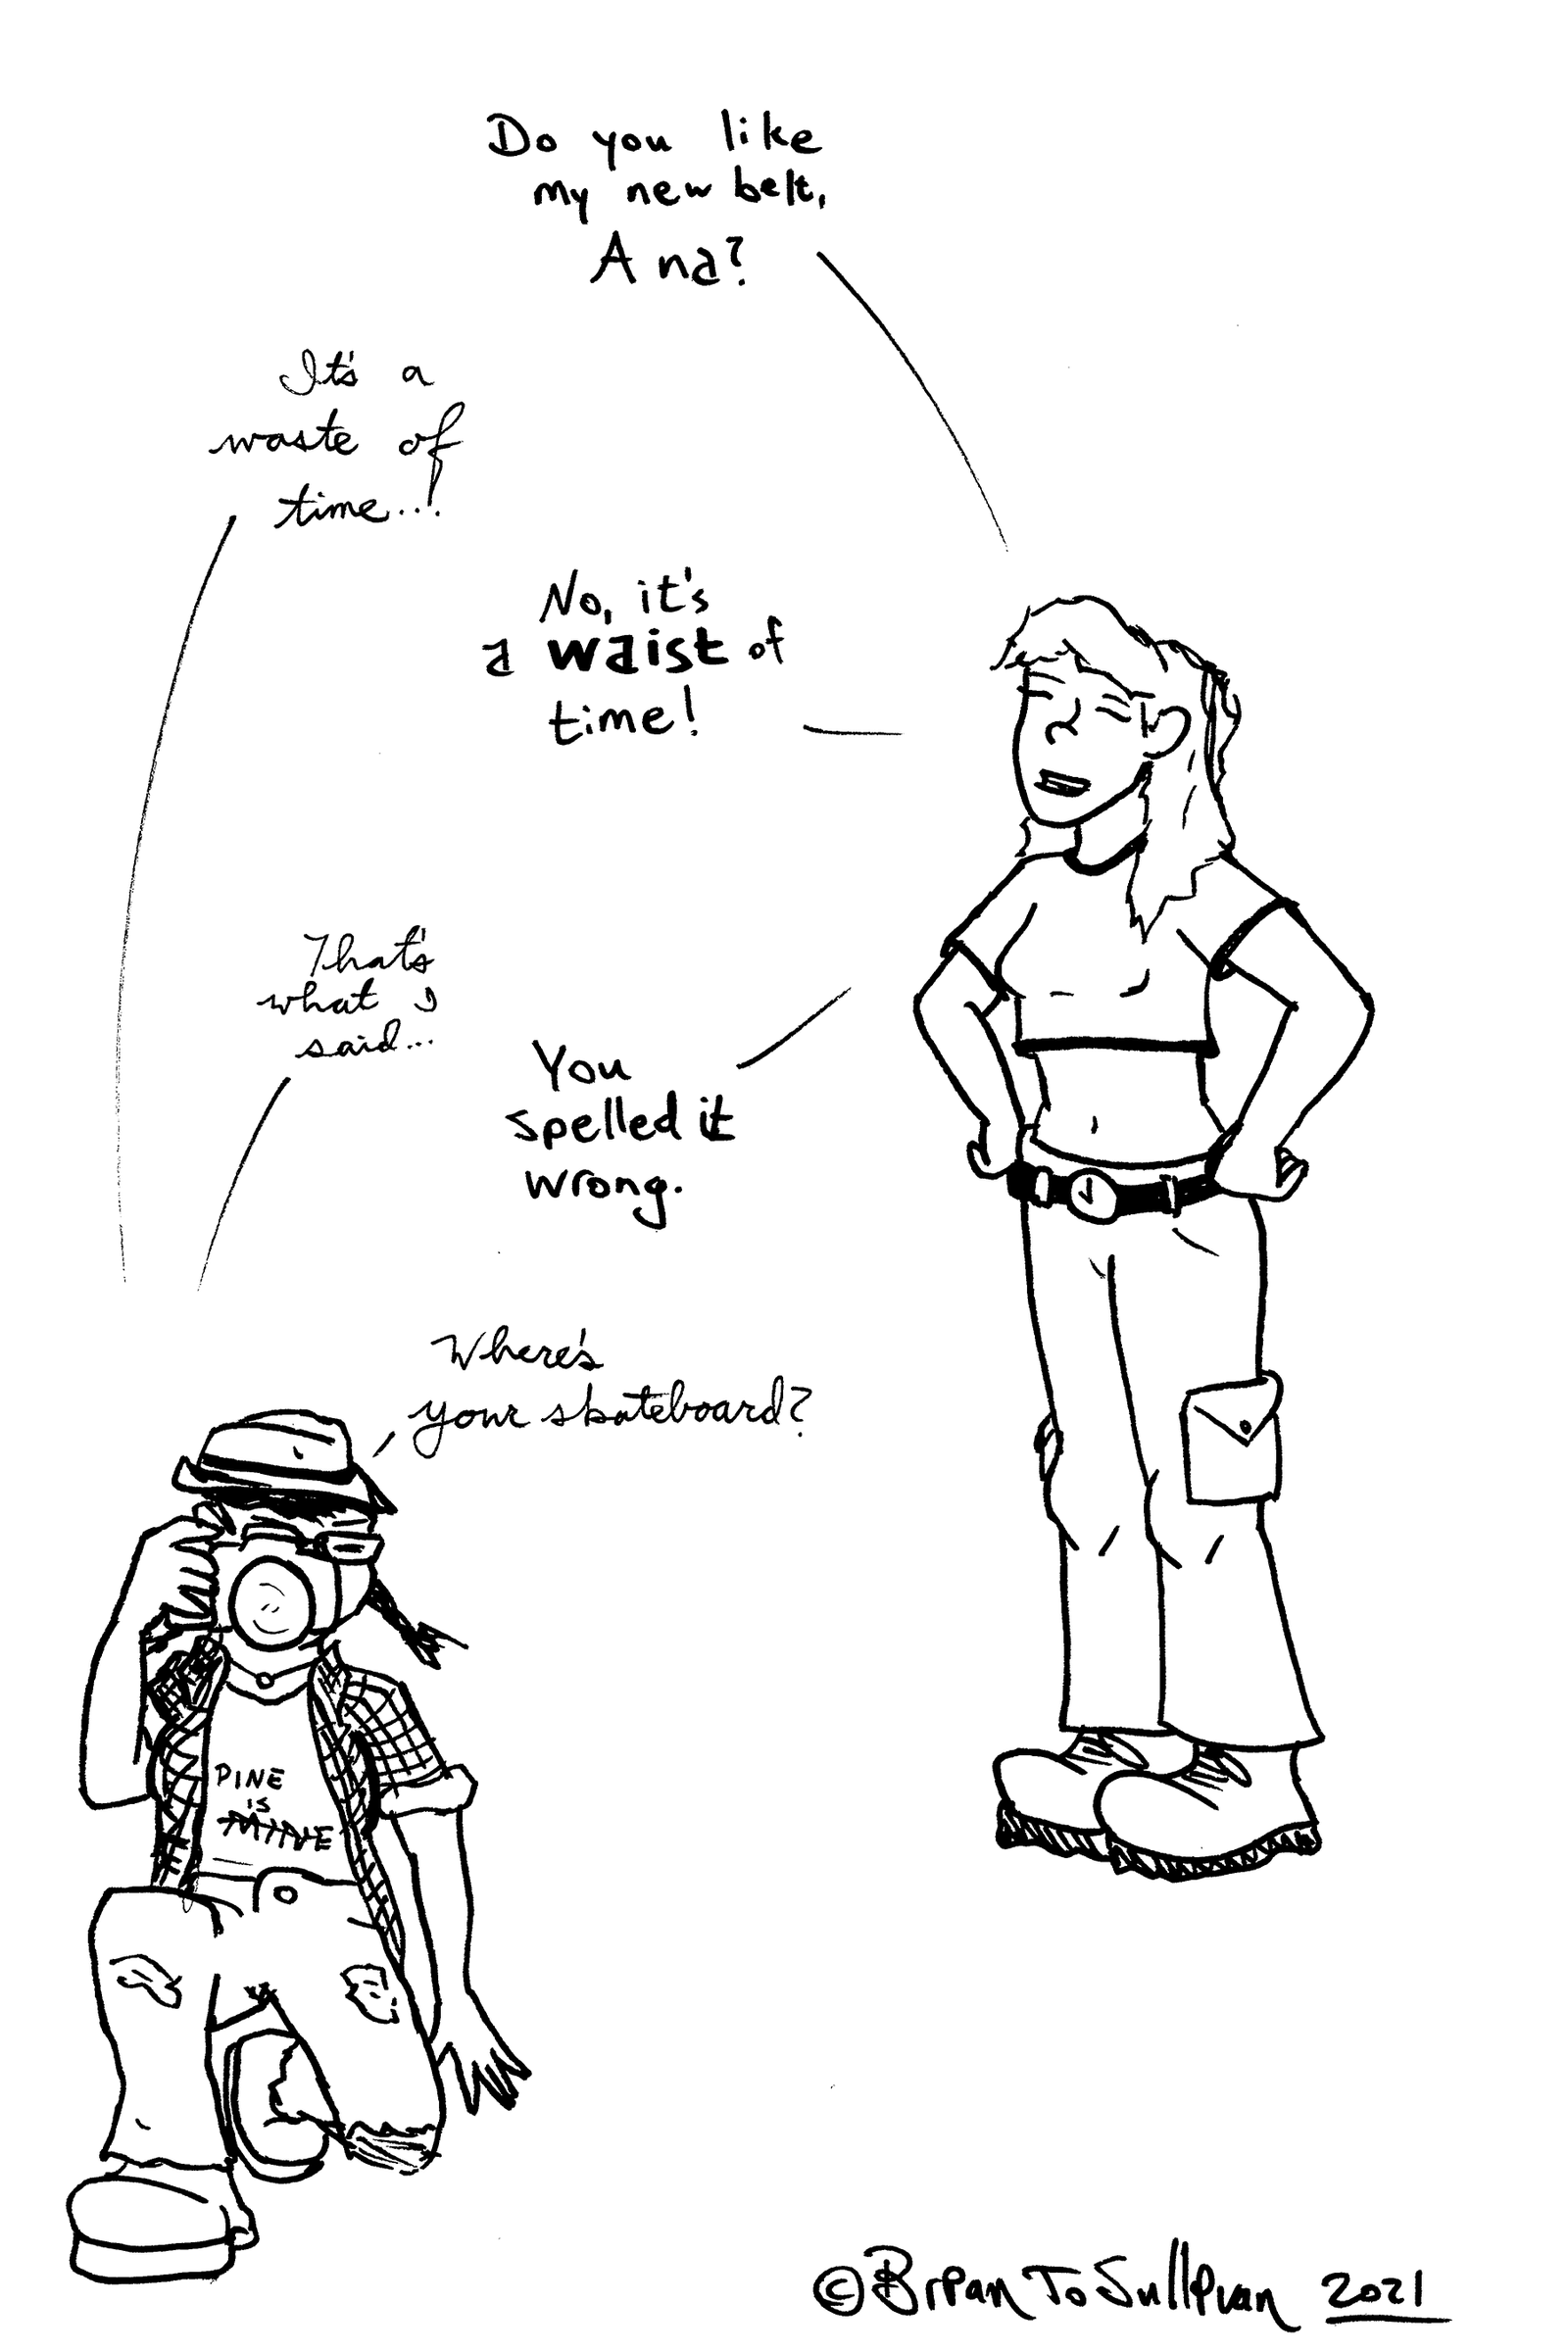 Do you like
my new belt,
Ana?
It's a
waste of
time...!
No, it's
a waist of
time!
That's
what I
said...
You
spelled it
wrong.
Where's
your skateboard?
PINE
IS
MINE
© Brian To Sullivan 2021